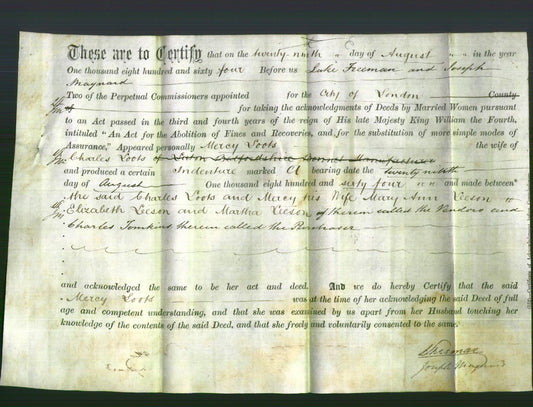 These are to Certify that on the twenty ninth day of August in the year
One thousand eight hundred and sixty four Before us Luke Freeman and Joseph
Maynard
Two of the Perpetual Commissioners appointed for the City of London County
of for taking the acknowledgments of Deeds by Married Women pursuant
to an Act passed in the third and fourth years of the reign of His late Majesty King William the Fourth,
intituled "An Act for the Abolition of Fines and Recoveries, and for the substitution of more simple modes of
Assurance," Appeared personally Mercy Loots the wife of
Charles Loots of Luton Bedfordshire Bonnet Manufacturer
and produced a certain Indenture marked A bearing date the twenty ninth
day of August One thousand eight hundred and sixty four and made between
the said Charles Loots and Mercy his Wife Mary Ann Leeson
Elizabeth Leeson and Martha Leeson of therein called the Vendors and
Charles Tomkins therein called the Purchaser
and acknowledged the same to be her act and deed. And we do hereby Certify that the said
Mercy Loots was at the time of her acknowledging the said Deed of full
age and competent understanding, and that she was examined by us apart from her Husband touching her
knowledge of the contents of the said Deed, and that she freely and voluntarily consented to the same.
Joseph Maynard